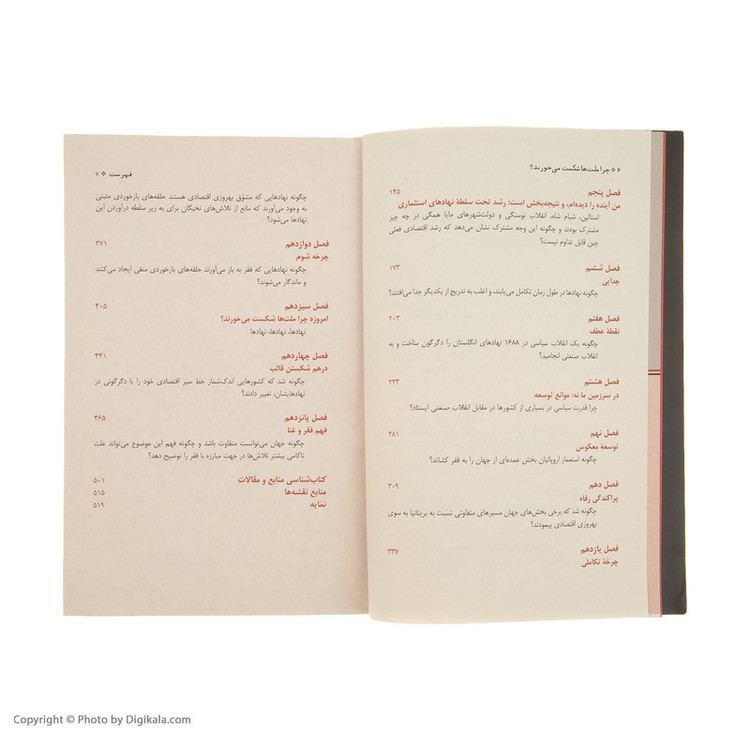 ۶ ❖ چرا ملت‌ها شکست می‌خورند؟
فصل پنجم ۱۴۵
من آینده را دیده‌ام، و نتیجه‌بخش است: رشد تحت سلطهٔ نهادهای استثماری
استالین، شیام شاه، انقلاب نوسنگی و دولت‌شهرهای مایا همگی در چه چیز
مشترک بودند و چگونه این وجه مشترک نشان می‌دهد که رشد اقتصادی فعلی
چین قابل تداوم نیست؟
فصل ششم ۱۷۳
جدایی
چگونه نهادها در طول زمان تکامل می‌یابند، و اغلب به تدریج از یکدیگر جدا می‌افتند؟
فصل هفتم ۲۰۳
نقطهٔ عطف
چگونه یک انقلاب سیاسی در ۱۶۸۸ نهادهای انگلستان را دگرگون ساخت و به
انقلاب صنعتی انجامید؟
فصل هشتم ۲۳۳
در سرزمین ما نه: موانع توسعه
چرا قدرت سیاسی در بسیاری از کشورها در مقابل انقلاب صنعتی ایستاد؟
فصل نهم ۲۸۱
توسعهٔ معکوس
چگونه استعمار اروپائیان بخش عمده‌ای از جهان را به فقر کشاند؟
فصل دهم ۳۰۹
پراکندگی رفاه
چگونه شد که برخی بخش‌های جهان مسیرهای متفاوتی نسبت به بریتانیا به سوی
بهروزی اقتصادی پیمودند؟
فصل یازدهم ۳۳۷
چرخهٔ تکاملی
فهرست ❖ ۷
چگونه نهادهایی که مشوّق بهروزی اقتصادی هستند حلقه‌های بازخوردی مثبتی
به وجود می‌آورند که مانع از تلاش‌های نخبگان برای به زیر سلطه درآوردن این
نهادها می‌شود؟
فصل دوازدهم ۳۷۱
چرخه شوم
چگونه نهادهایی که فقر به بار می‌آورند حلقه‌های بازخوردی منفی ایجاد می‌کنند
و ماندگار می‌شوند؟
فصل سیزدهم ۴۰۵
امروزه چرا ملت‌ها شکست می‌خورند؟
نهادها، نهادها، نهادها
فصل چهاردهم ۴۴۱
درهم شکستن قالب
چگونه شد که کشورهایی اندک‌شمار خط سیر اقتصادی خود را با دگرگونی در
نهادهایشان، تغییر دادند؟
فصل پانزدهم ۴۶۵
فهم فقر و غنا
چگونه جهان می‌توانست متفاوت باشد و چگونه فهم این موضوع می‌تواند علت
ناکامی بیشتر تلاش‌ها در جهت مبارزه با فقر را توضیح دهد؟
کتاب‌شناسی منابع و مقالات ۵۰۱
منابع نقشه‌ها ۵۱۵
نمایه ۵۱۹
Copyright © Photo by Digikala.com